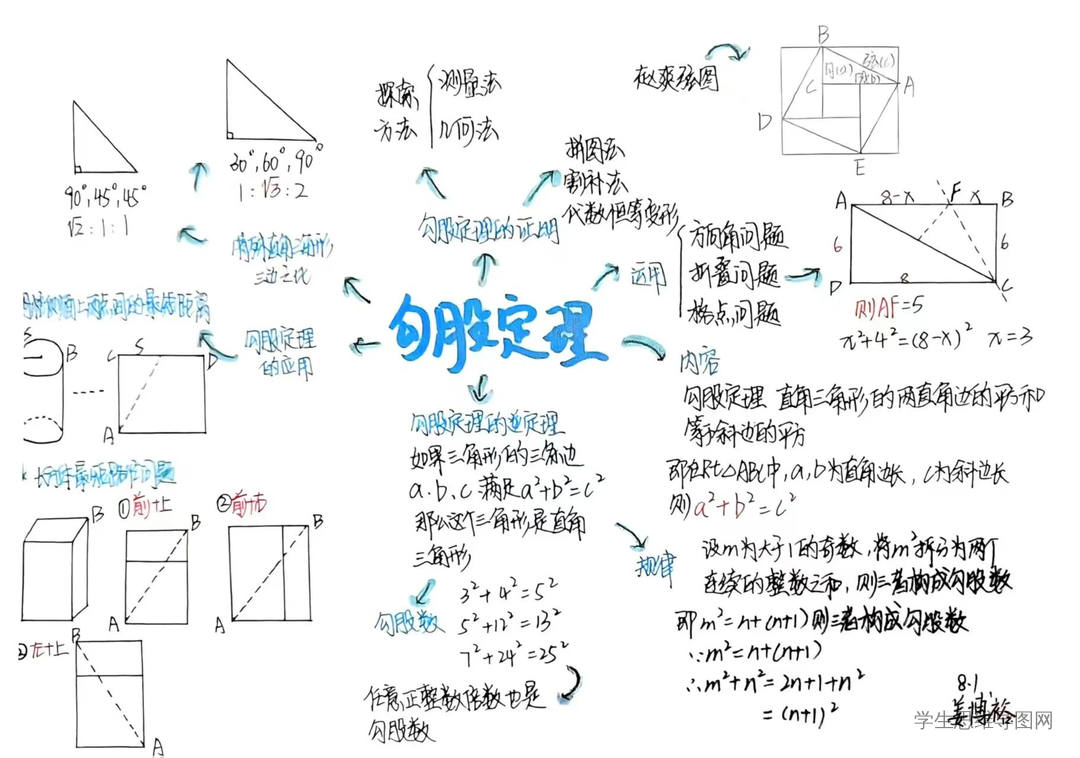 勾股定理
勾股定理的证明
探索
方法
测量法
几何法
拼图法
割补法
代数恒等变形
赵爽弦图
B
勾(a)
弦(c)
股(b)
C
A
D
E
运用
方向角问题
折叠问题
格点问题
A
8-x
F
x
B
6
6
D
8
C
则AF=5
x²+4²=(8-x)² x=3
内容
勾股定理 直角三角形的两直角边的平方和
等于斜边的平方
即在Rt△ABC中,a,b为直角边长,c为斜边长
则a²+b²=c²
规律
设m为大于1的奇数,将m²拆分为两个
连续的整数之和,则三者构成勾股数
即m²=n+(n+1)则三者构成勾股数
∵m²=n+(n+1)
∴m²+n²=2n+1+n²
=(n+1)²
勾股定理的逆定理
如果三角形的三角边
a.b.c满足a²+b²=c²
那么这个三角形是直角
三角形
勾股数
3²+4²=5²
5²+12²=13²
7²+24²=25²
任意正整数倍数也是
勾股数
直角三角形
三边之比
30°,60°,90°
1:√3:2
90°,45°,45°
√2:1:1
勾股定理
的应用
侧面上两点间的最短距离
B
C
S
D
A
长方体最短路径问题
B
①前+上
B
A
②前+右
B
A
左+上
B
A
8.1
姜博裕
学生思维导图网